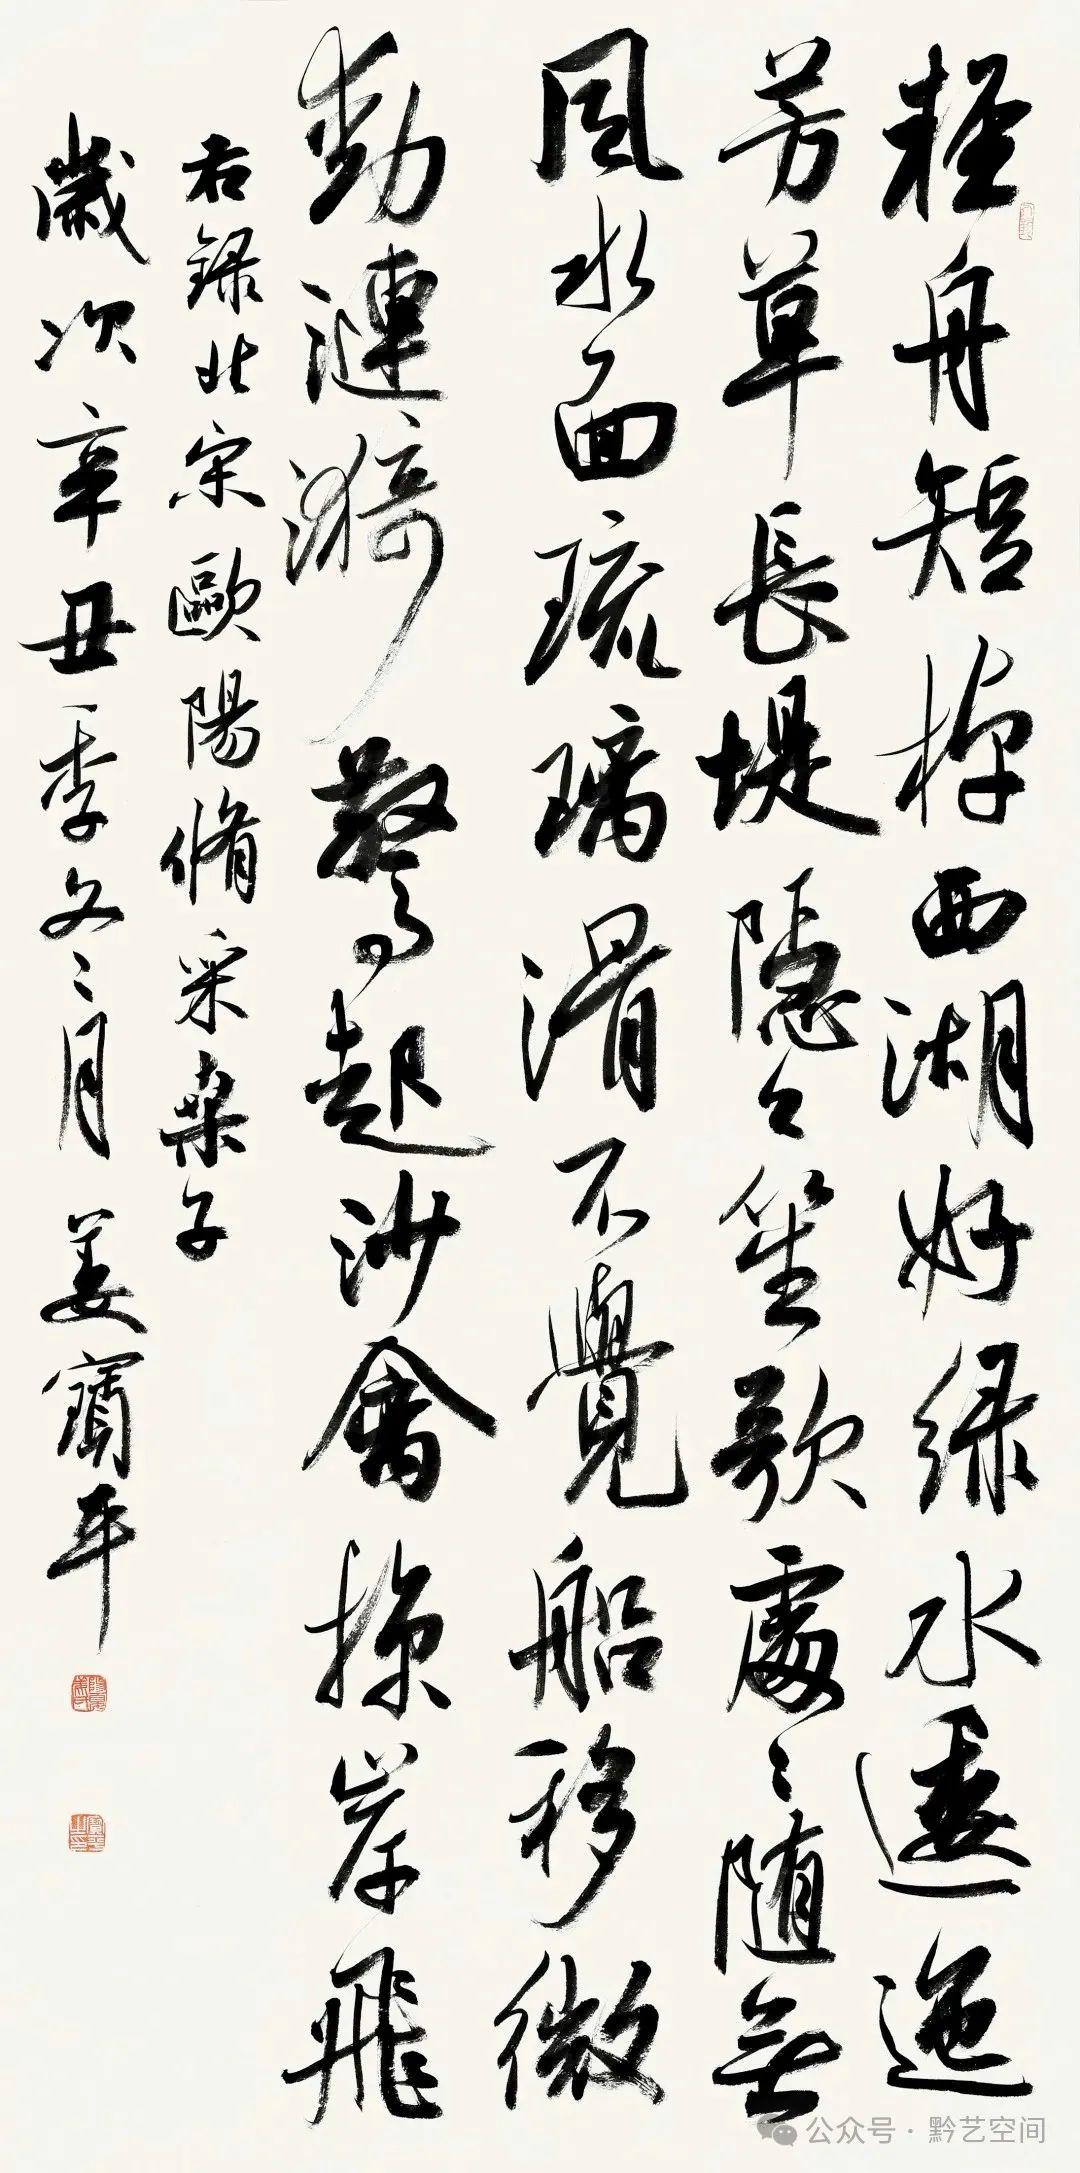 輕舟短棹西湖好綠水逶迤
芳草長堤隱々笙歌處〻隨無
風水面琉璃滑不覺船移微
動漣漪驚起沙禽掠岸飛
右録北宋歐陽脩采桑子
歲次辛丑季冬〻月 姜寶平
公众号·黔艺空间